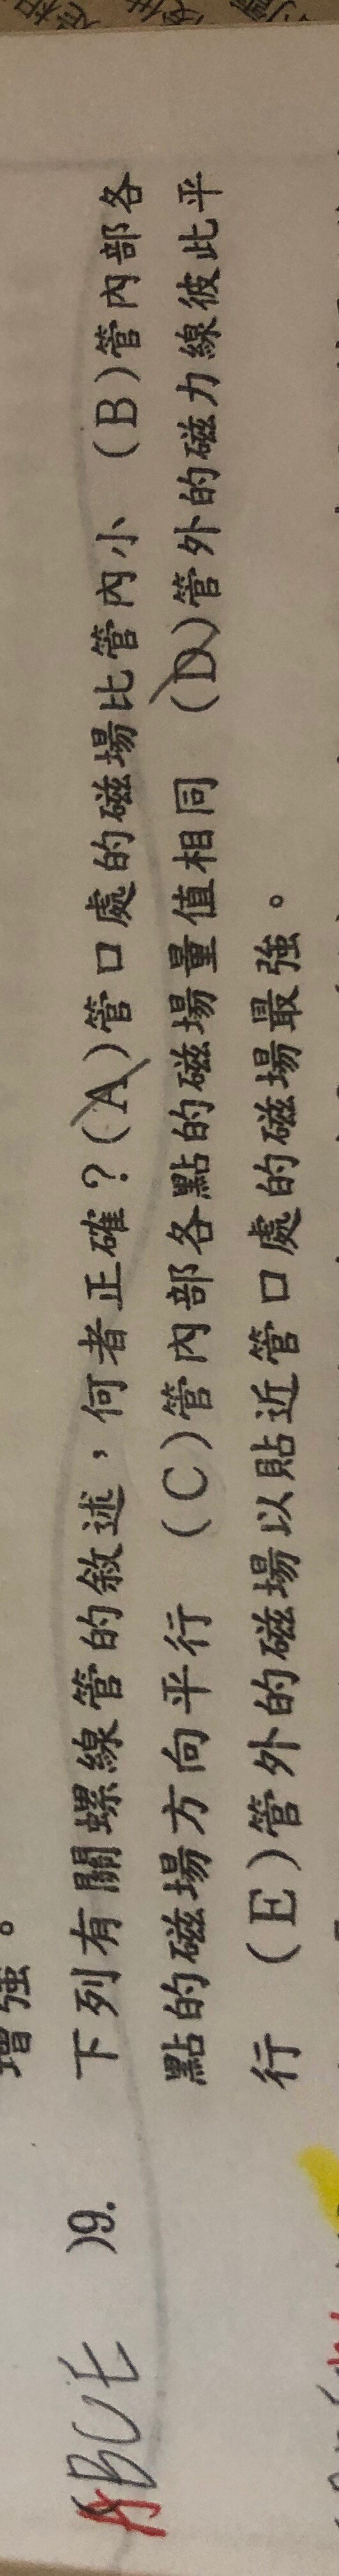 增強。
ABCE )9. 下列有關螺線管的敘述，何者正確？(A)管口處的磁場比管內小 (B)管內部各
點的磁場方向平行 (C)管內部各點的磁場量值相同 (D)管外的磁力線彼此平
行 (E)管外的磁場以貼近管口處的磁場最強。